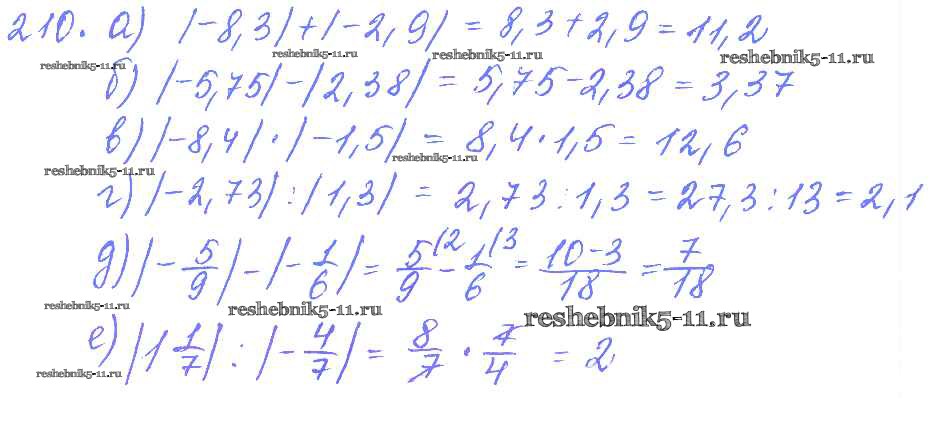 210. а) |-8,3|+|-2,9| = 8,3+2,9=11,2
reshebnik5-11.ru reshebnik5-11.ru reshebnik5-11.ru reshebnik5-11.ru
б) |-5,75|-|2,38| = 5,75-2,38 = 3,37
в) |-8,4|·|-1,5| = 8,4·1,5 = 12,6
reshebnik5-11.ru reshebnik5-11.ru
г) |-2,73|:|1,3| = 2,73:1,3 = 27,3:13 = 2,1
д) |-5/9|-|-1/6| = 5/9(2 - 1/6(3 = 10-3/18 = 7/18
reshebnik5-11.ru reshebnik5-11.ru reshebnik5-11.ru
е) |1 1/7| : |-4/7| = 8/7 · 7/4 = 2
reshebnik5-11.ru